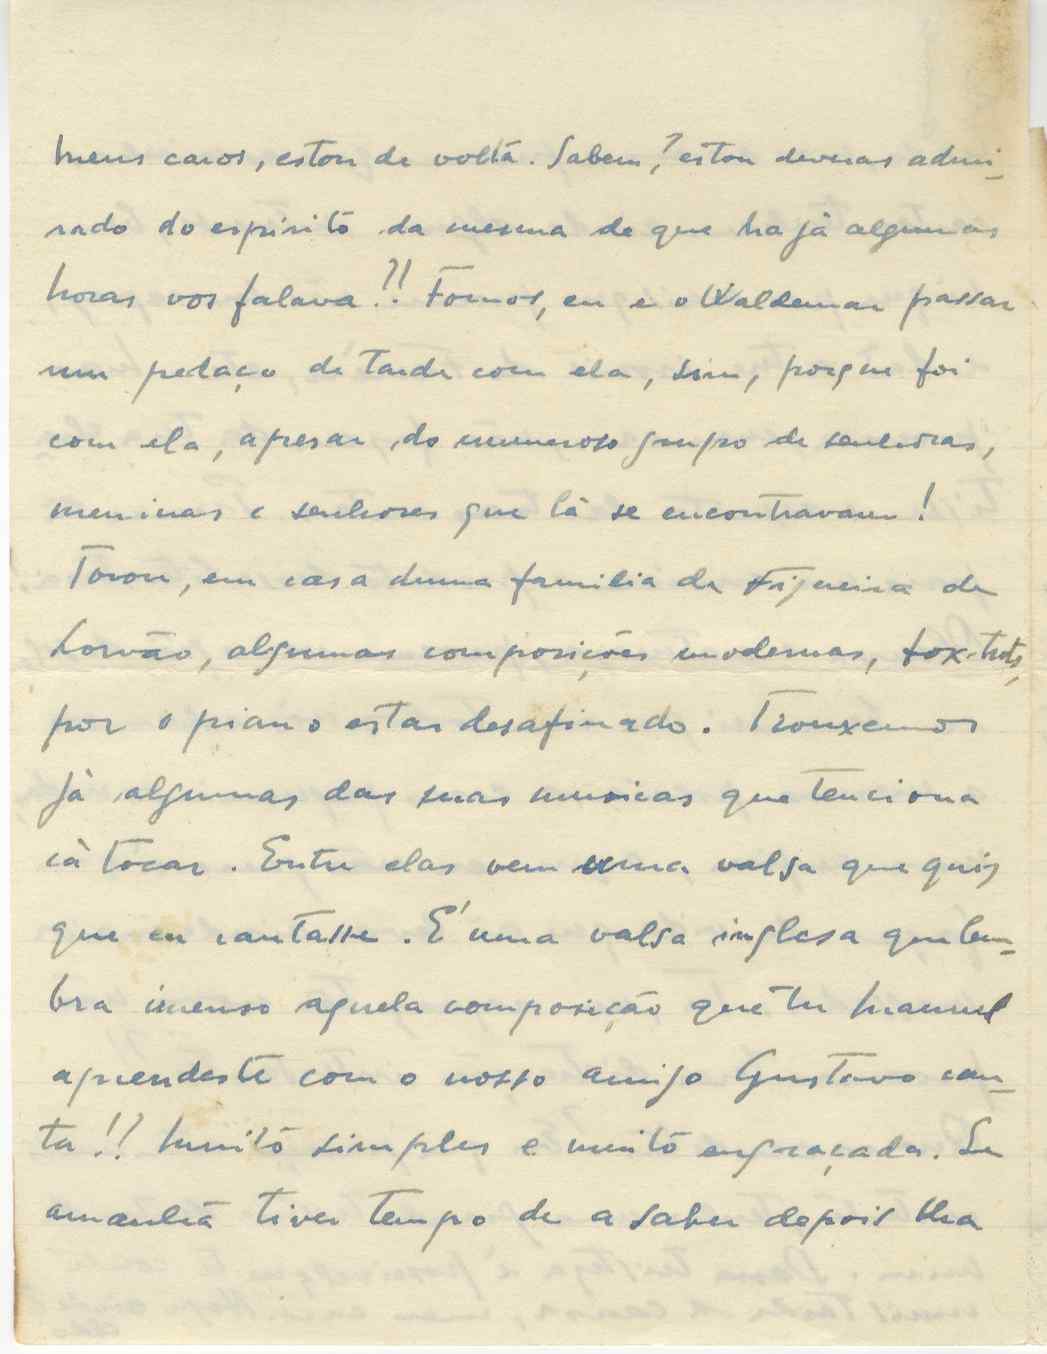 Meus caros, estou de volta. Sabem? estou deveras admi-
rado do espirito da mesma de que ha já algumas
horas vos falava!! Fomos, eu e o Waldemar passar
um pedaço de tarde com ela, sim, porque foi
com ela, apesar do numeroso grupo de senhoras,
meninas e senhores que lá se encontravam!
Tocou, em casa duma familia de Figueira de
Lorvão, algumas composições modernas, fox-trots,
por o piano estar desafinado. Trouxemos
já algumas das suas musicas que tenciona
cá tocar. Entre elas vem uma valsa que quis
que eu cantasse. É uma valsa inglesa que lem-
bra imenso aquela composição que tu Manuel
aprendeste com o nosso amigo Gustavo can-
ta!! Muito simples e muito engraçada. Se
amanhã tiver tempo de a saber depois lha